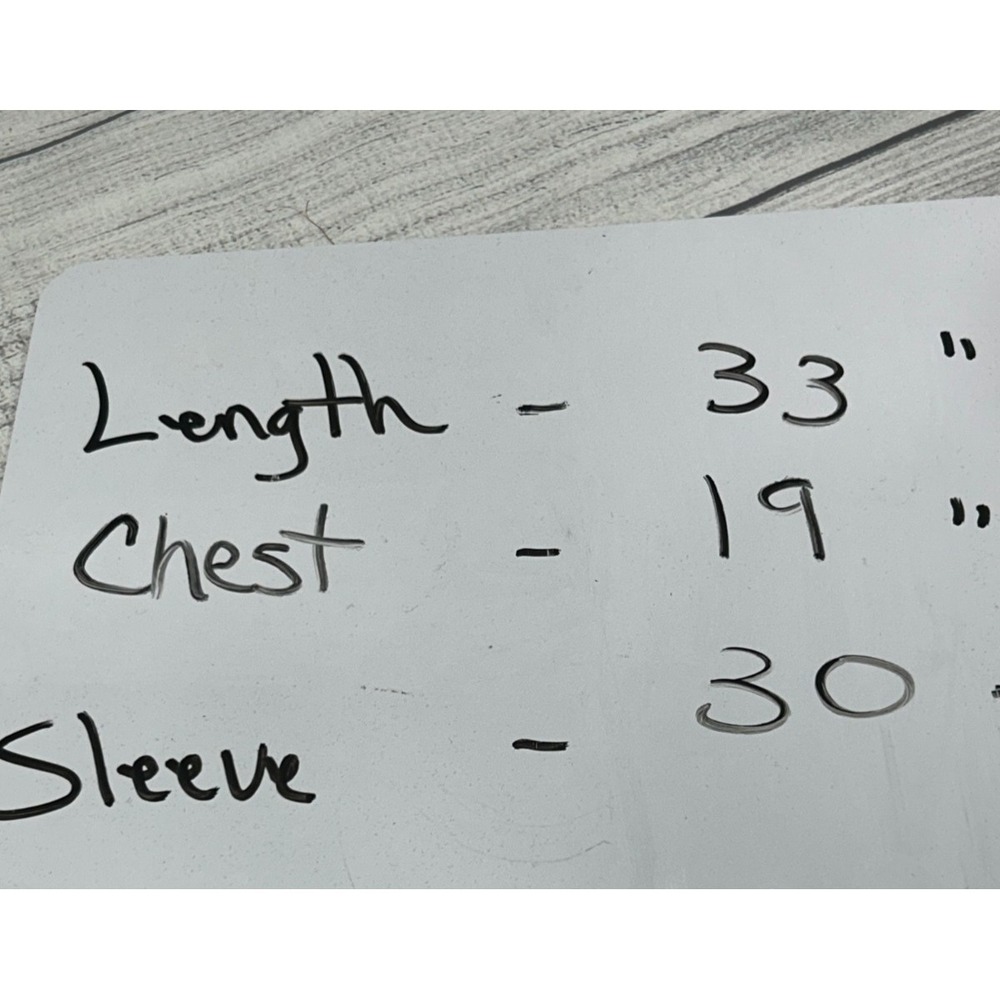 Length - 33 "
Chest - 19 "
Sleeve - 30